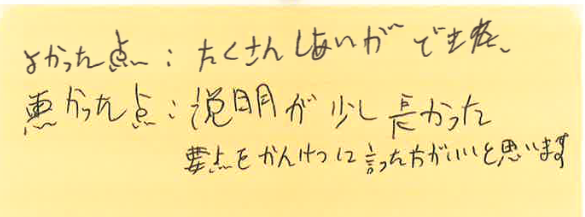 よかった点：たくさんしあいができた、
悪かった点：説明が少し長かった
要点をかんけつに言った方がいいと思います